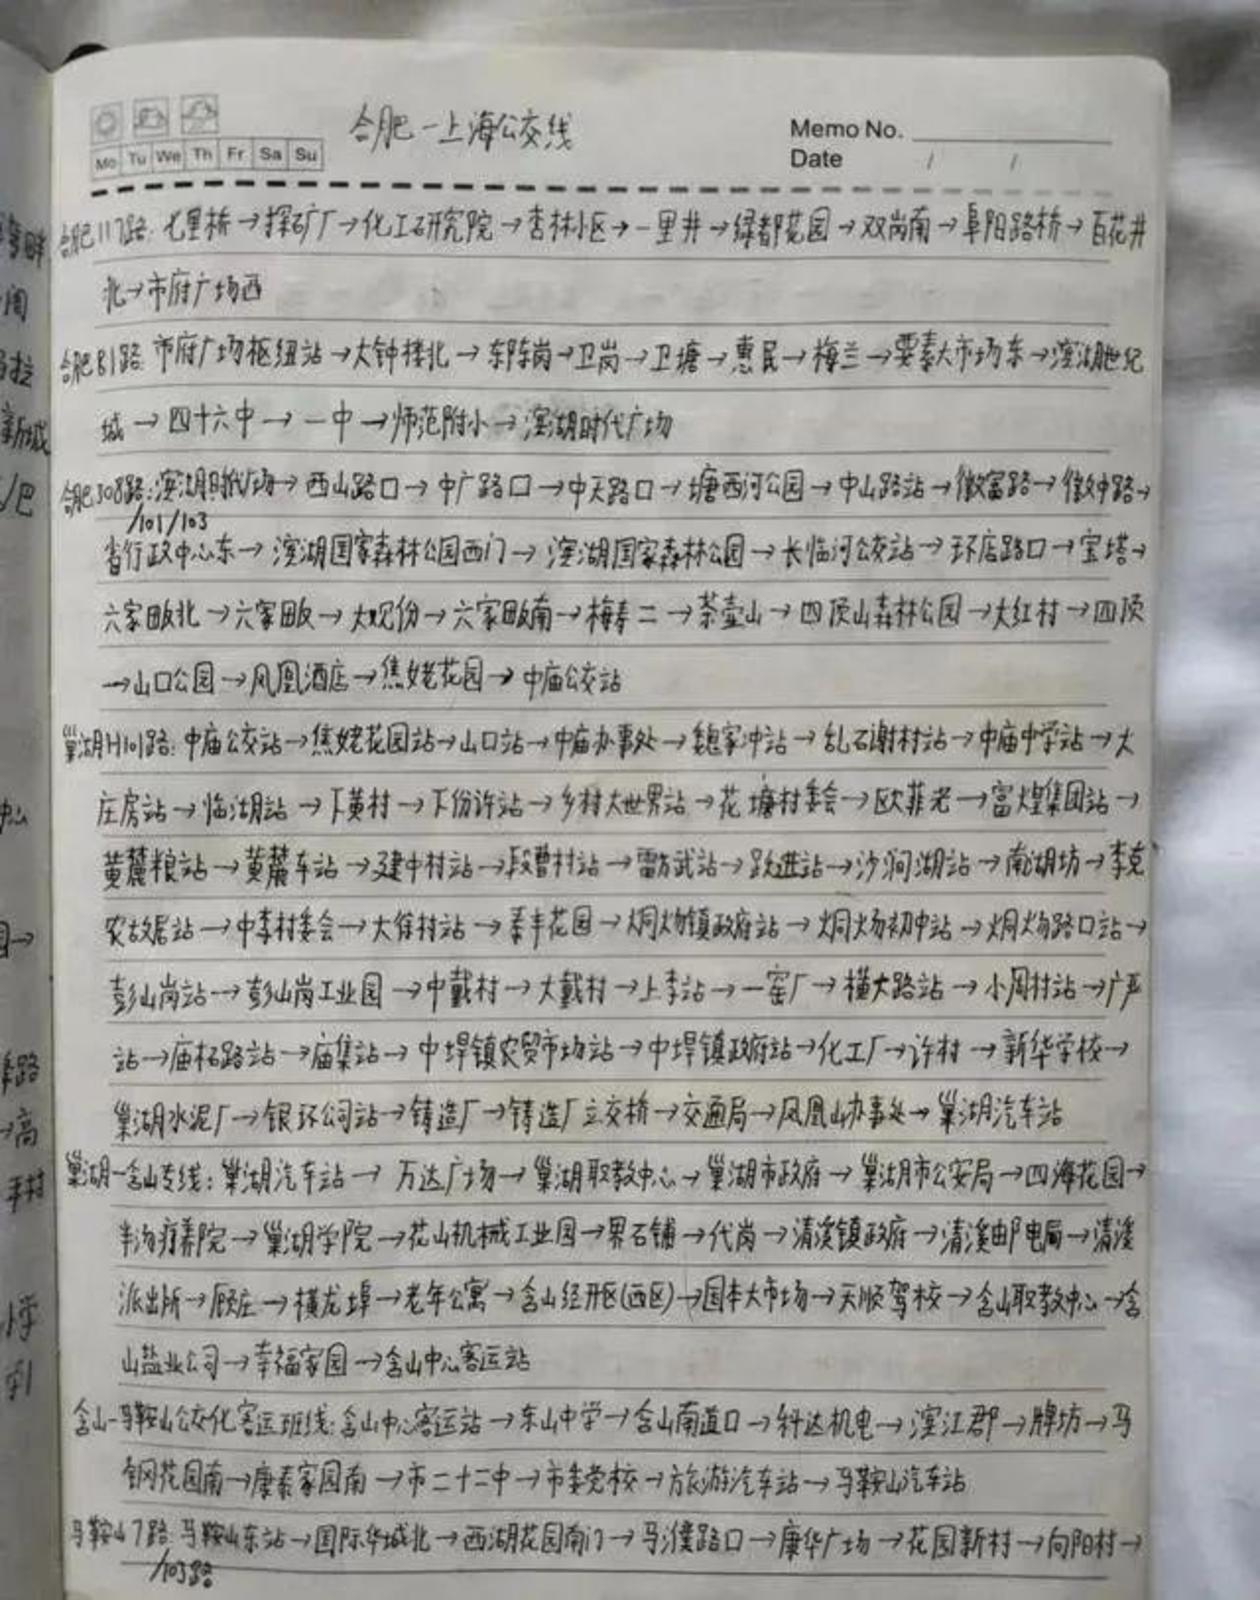 合肥-上海公交线
Memo No.
Date / /
Mo Tu We Th Fr Sa Su
合肥117路: 七里桥→探矿厂→化工研究院→杏林小区→一里井→绿都花园→双岗南→阜阳路桥→百花井
北→市府广场西
合肥81路: 市府广场枢纽站→大钟楼北→东陈岗→卫岗→卫塘→惠民→梅兰→要素大市场东→滨湖世纪
城→四十六中→一中→师范附小→滨湖时代广场
合肥308路: 滨湖时代广场→西山路口→中广路口→中天路口→塘西河公园→中山路站→徽富路→徽州路→
/101/103
省行政中心东→滨湖国家森林公园西门→滨湖国家森林公园→长临河公交站→环店路口→宝塔→
六家畈北→六家畈→大观份→六家畈南→梅寿二→茶壶山→四顶山森林公园→大红村→四顶
→山口公园→凤凰酒店→焦姥花园→中庙公交站
巢湖H101路: 中庙公交站→焦姥花园站→山口站→中庙办事处→魏家冲站→乱石谢村站→中庙中学站→大
庄房站→临湖站→下黄村→下份许站→乡村大世界站→花塘村委会→欧菲光→富煌集团站→
黄麓粮站→黄麓车站→建中村站→段曹村站→雷方武站→跃进站→沙涧湖站→南湖坊→李克
农故居站→中李村委会→大徐村站→泰丰花园→烔炀镇政府站→烔炀初中站→烔炀路口站→
彭山岗站→彭山岗工业园→中戴村→大戴村→上李站→一窑厂→横大路站→小周村站→广严
站→庙柘路站→庙集站→中垾镇农贸市场站→中垾镇政府站→化工厂→许村→新华学校→
巢湖水泥厂→银环公司站→铸造厂→铸造厂立交桥→交通局→凤凰山办事处→巢湖汽车站
巢湖-含山专线: 巢湖汽车站→万达广场→巢湖职教中心→巢湖市政府→巢湖市公安局→四海花园→
半汤疗养院→巢湖学院→花山机械工业园→界石铺→代岗→清溪镇政府→清溪邮电局→清溪
派出所→顾庄→横龙埠→老年公寓→含山经开区(西区)→国本大市场→天顺驾校→含山职教中心→含
山盐业公司→幸福家园→含山中心客运站
含山-马鞍山公交化客运班线: 含山中心客运站→东山中学→含山南道口→科达机电→滨江郡→牌坊→马
钢花园南→康泰家园南→市二十二中→市委党校→旅游汽车站→马鞍山汽车站
马鞍山7路: 马鞍山东站→国际华城北→西湖花园南门→马濮路口→康华广场→花园新村→向阳村→
/103路